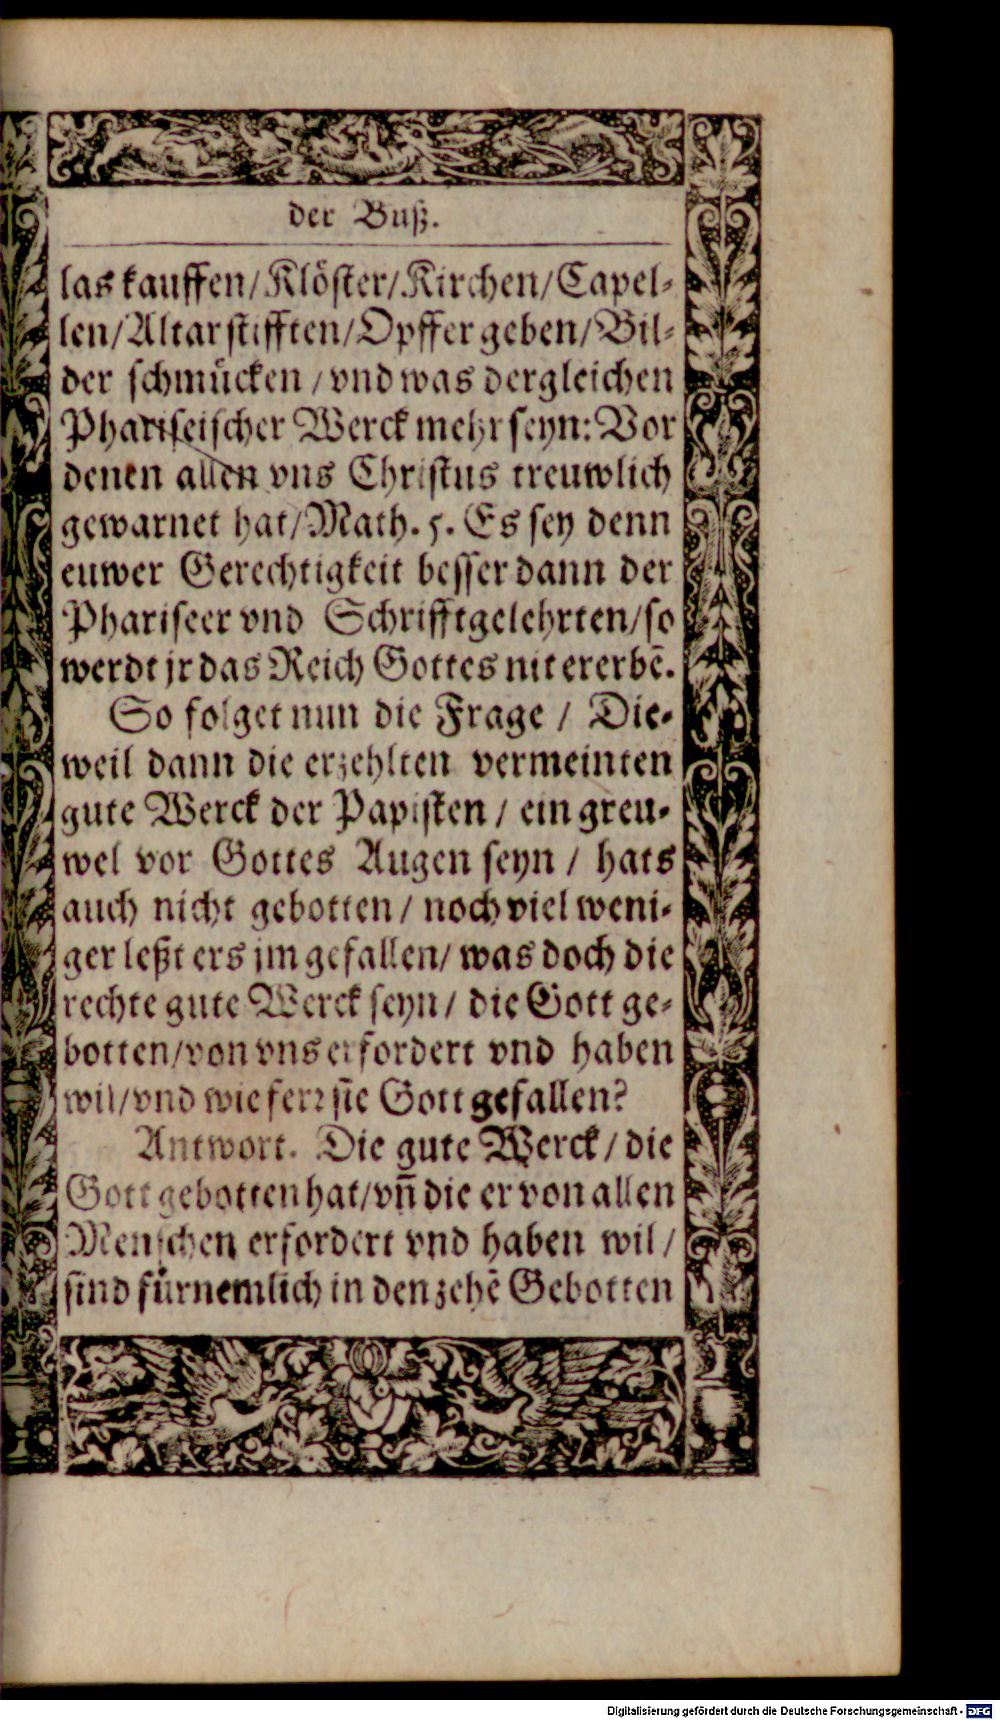 der Buß.
las kauffen/Klöster/Kirchen/Capel-
len/Altar stifften/Opffer geben/Bil-
der schmücken /vnd was dergleichen
Phariseischer Werck mehr seyn: Vor
denen allen vns Christus treuwlich
gewarnet hat/Math. 5. Es sey denn
euwer Gerechtigkeit besser dann der
Phariseer vnd Schrifftgelehrten/so
werdt jr das Reich Gottes nit ererbē.
So folget nun die Frage / Die-
weil dann die erzehlten vermeinten
gute Werck der Papisten / ein greu-
wel vor Gottes Augen seyn / hats
auch nicht gebotten / noch viel weni-
ger leßt ers jm gefallen/ was doch die
rechte gute Werck seyn/ die Gott ge-
botten/von vns erfordert vnd haben
wil/vnd wie ferꝛ sie Gott gefallen?
Antwort. Die gute Werck / die
Gott gebotten hat/vñ die er von allen
Menschen erfordert vnd haben wil /
sind fürnemlich in den zehē Gebotten
Digitalisierung gefördert durch die Deutsche Forschungsgemeinschaft - DFG